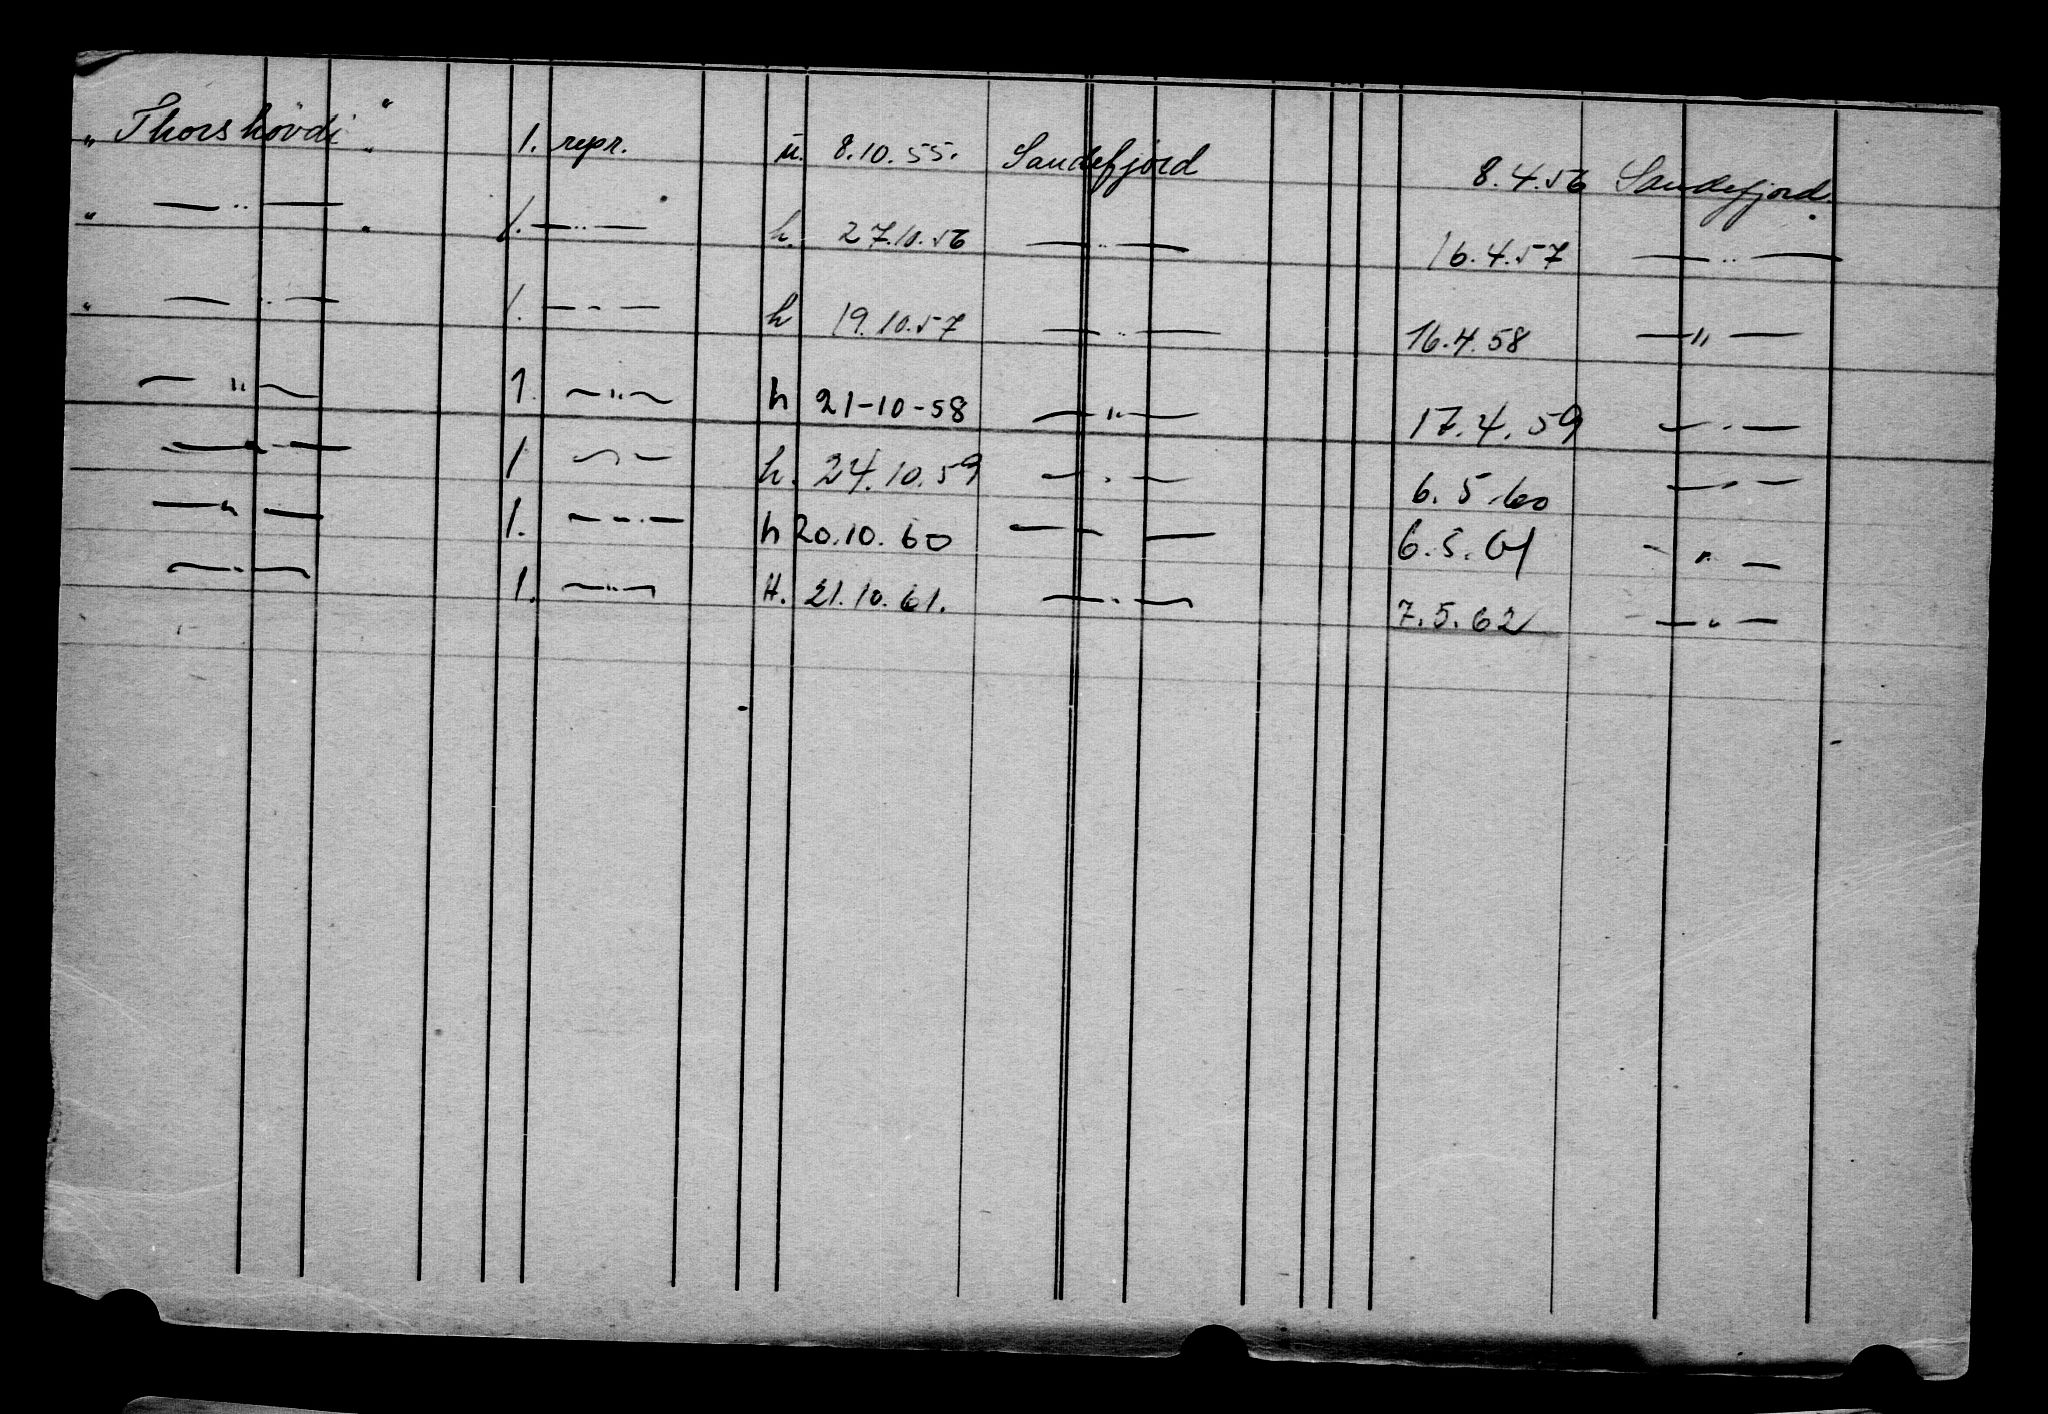 " Thorshövdi " 1. repr. u. 8.10.55. Sandefjord 8.4.56 Sandefjord.
" — " — 1. — " — h. 27.10.56 — " — 16.4.57 — " —
" — " — 1. — " — h 19.10.57 — " — 16.4.58 — " —
— " — 1. — " — h 21-10-58 — " — 17.4.59 — " —
— " — 1 — " — h. 24.10.59 — " — 6.5.60 — " —
— " — 1. — " — h 20.10.60 — — 6.5.61 — " —
— " — 1. — " — H. 21.10.61. — " — 7.5.62 — " —